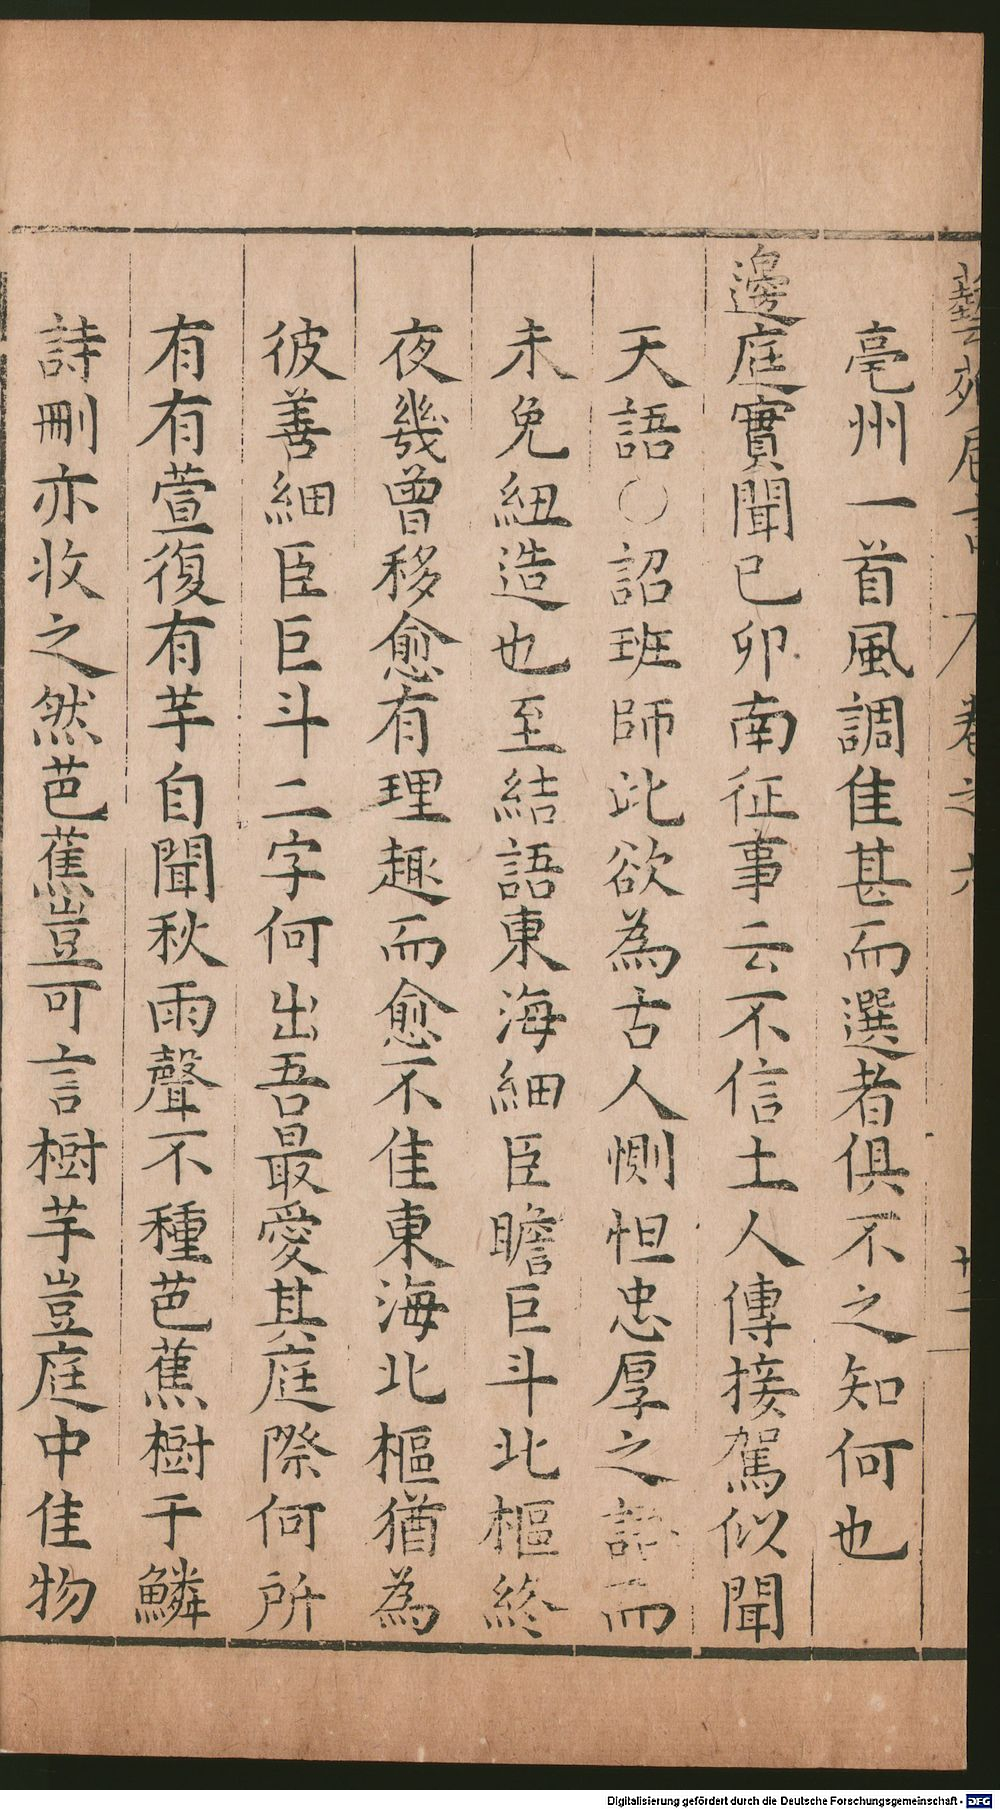 藝苑卮言 八 卷之六 廿二
亳州一首風調佳甚而選者俱不之知何也
邊庭實聞已卯南征事云不信土人傳接駕似聞
天語〇詔班師此欲為古人惻怛忠厚之語而
未免紐造也至結語東海細臣瞻巨斗北樞終
夜幾曾移愈有理趣而愈不佳東海北樞猶為
彼善細臣巨斗二字何出吾最愛其庭際何所
有有萱復有芋自聞秋雨聲不種芭蕉樹于鱗
詩刪亦收之然芭蕉豈可言樹芋豈庭中佳物
Digitalisierung gefördert durch die Deutsche Forschungsgemeinschaft - DFG